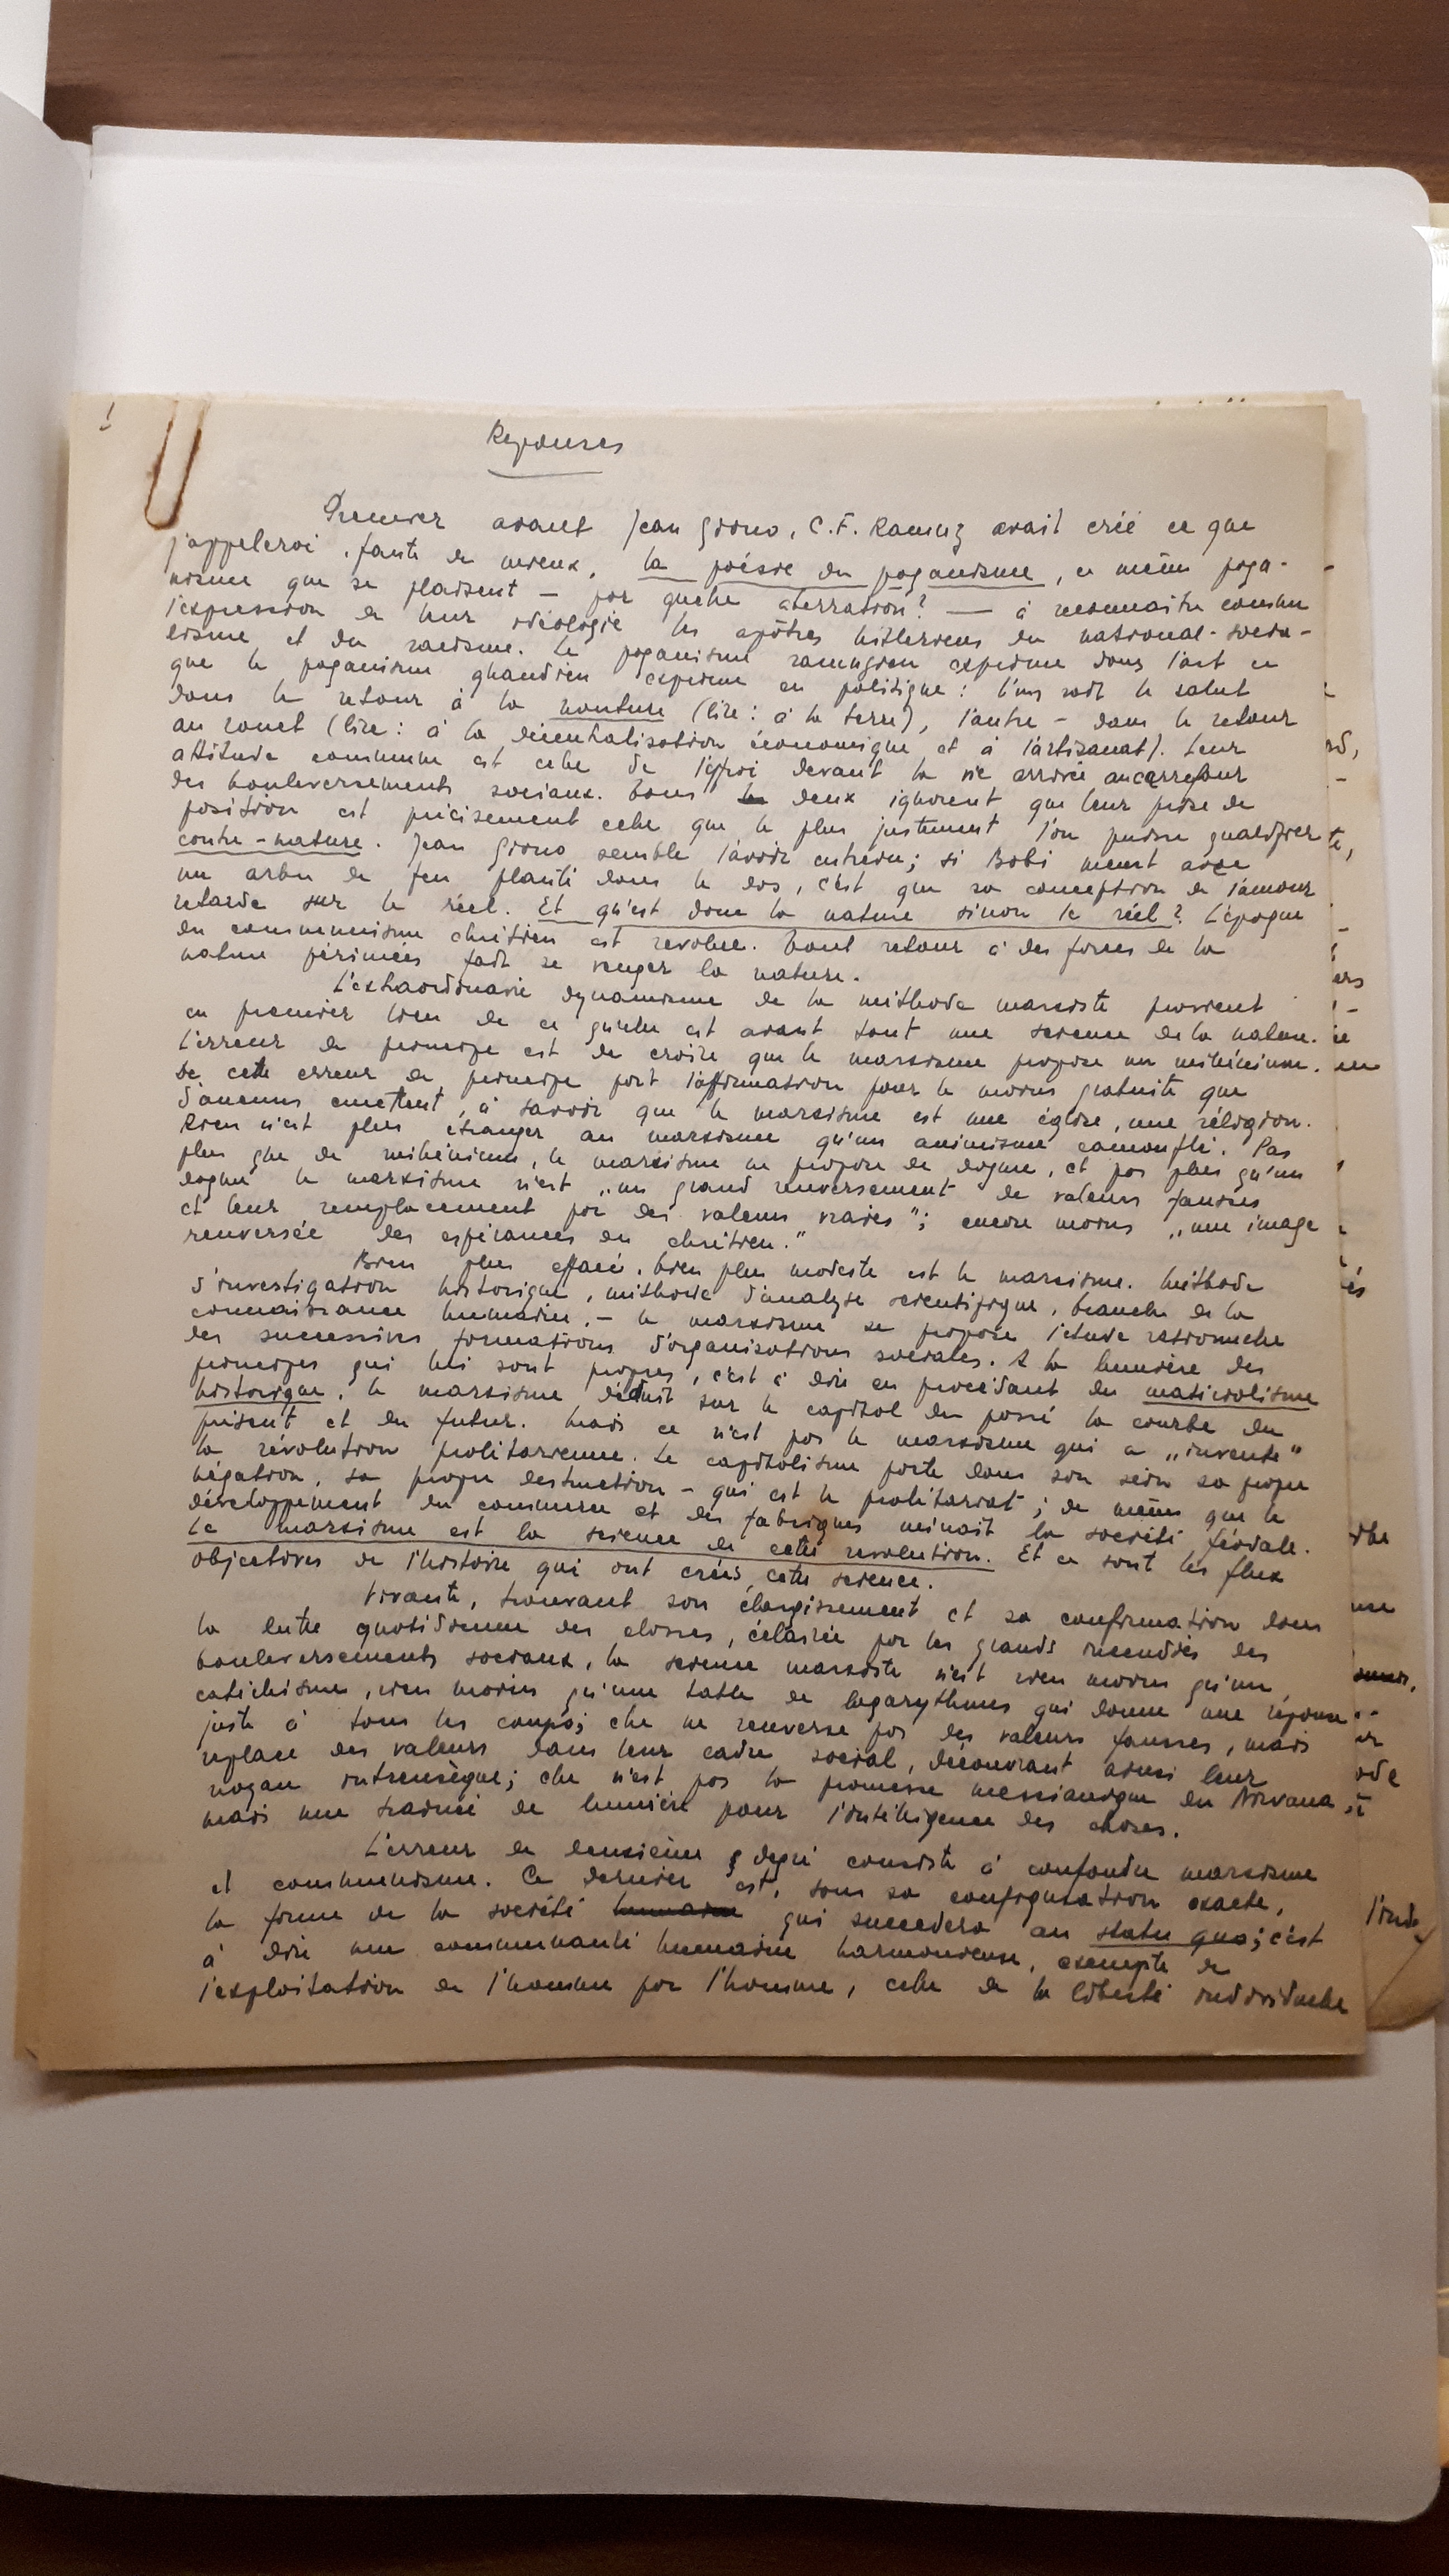 1
Reponses
Premier avant Jean Giono, C.F. Ramuz avait créé ce que
j'appelerai, faute de mieux, la poésie du paganisme, ce même paga-
nisme que se plaisent — par quelle aberration? — à reconnaitre comme
l'expression de leur idéologie les apôtres hitleriens du national-socia-
lisme et du racisme. Le paganisme ramuzien exprime dans l'art ce
que le paganisme ghandien exprime en politique: l'un voit le salut
dans le retour à la nouture (lire: à la terre), l'autre - dans le retour
au rouet (lire: à la décentralisation économique et à l'artisanat). Leur
attitude commune est celle de l'effroi devant la vie arrivée au carrefour
des bouleversements sociaux. Tous les deux ignorent que leur prise de
position est précisement celle que le plus justement l'on puisse qualifier
contre-nature. Jean Giono semble l'avoir entrevu; si Bobi meurt avec
un arbre de feu planté dans le dos, c'est que sa conception de l'amour
retarde sur le réel. Et qu'est donc la nature sinon le réel? L'époque
du communisme chrétien est revolue. Tout retour à des forces de la
nature périmées fait se venger la nature.
L'extraordinaire dynamisme de la méthode marxiste provient
en premier lieu de ce qu'elle est avant tout une science de la nature.
L'erreur de principe est de croire que le marxisme propose un millénium.
De cette erreur de principe part l'affirmation pour le moins gratuite que
d'aucuns emettent, à savoir que le marxisme est une église, une réligion.
Rien n'est plus étranger au marxisme qu'un animisme camouflé. Pas
plus que de millénium, le marxisme ne propose de dogme, et pas plus qu'un
dogme le marxisme n'est „un grand renversement de valeurs fausses
et leur remplacement par des valeurs vraies"; encore moins „une image
renversée des espérances du chrétien."
Bien plus effacé, bien plus modeste est le marxisme. Méthode
d'investigation historique, méthode d'analyse scientifique, branche de la
connaissance humaine, - le marxisme se propose l'étude rationnelle
des successives formations d'organisations sociales. A la lumière des
principes qui lui sont propres, c'est à dire en procédant du matérialisme
historique, le marxisme déduit sur le capital du passé la courbe du
présent et du futur. Mais ce n'est pas le marxisme qui a „inventé"
la révolution prolétarienne. Le capitalisme porte dans son sein sa propre
négation, sa propre destruction - qui est le prolétariat; de même que le
développement du commerce et des fabriques minait la société féodale.
Le marxisme est la science de cette revolution. Et ce sont les flux
objectives de l'histoire qui ont créés cette science.
Vivante, trouvant son élargissement et sa confirmation dans
la lutte quotidienne des classes, éclairée par les grands incendies des
bouleversements sociaux, la science marxiste n'est rien moins qu'un
catéchisme, rien moins qu'une table de logarythmes qui donne une réponse
juste à tous les coups; elle ne renverse pas des valeurs fausses, mais
replace des valeurs dans leur cadre social, découvrant ainsi leur
noyau intrensèque; elle n'est pas la promesse messianique du Nirvana,
mais une trainée de lumière pour l'intelligence des choses.
L'erreur de deuxième degré consiste à confondre marxisme
et communisme. Ce dernier est, sous sa configuration exacte,
la forme de la société humaine qui succedera au statu quo; c'est
à dire une communauté humaine harmonieuse, exempte de
l'exploitation de l'homme par l'homme, celle de la liberté individuelle